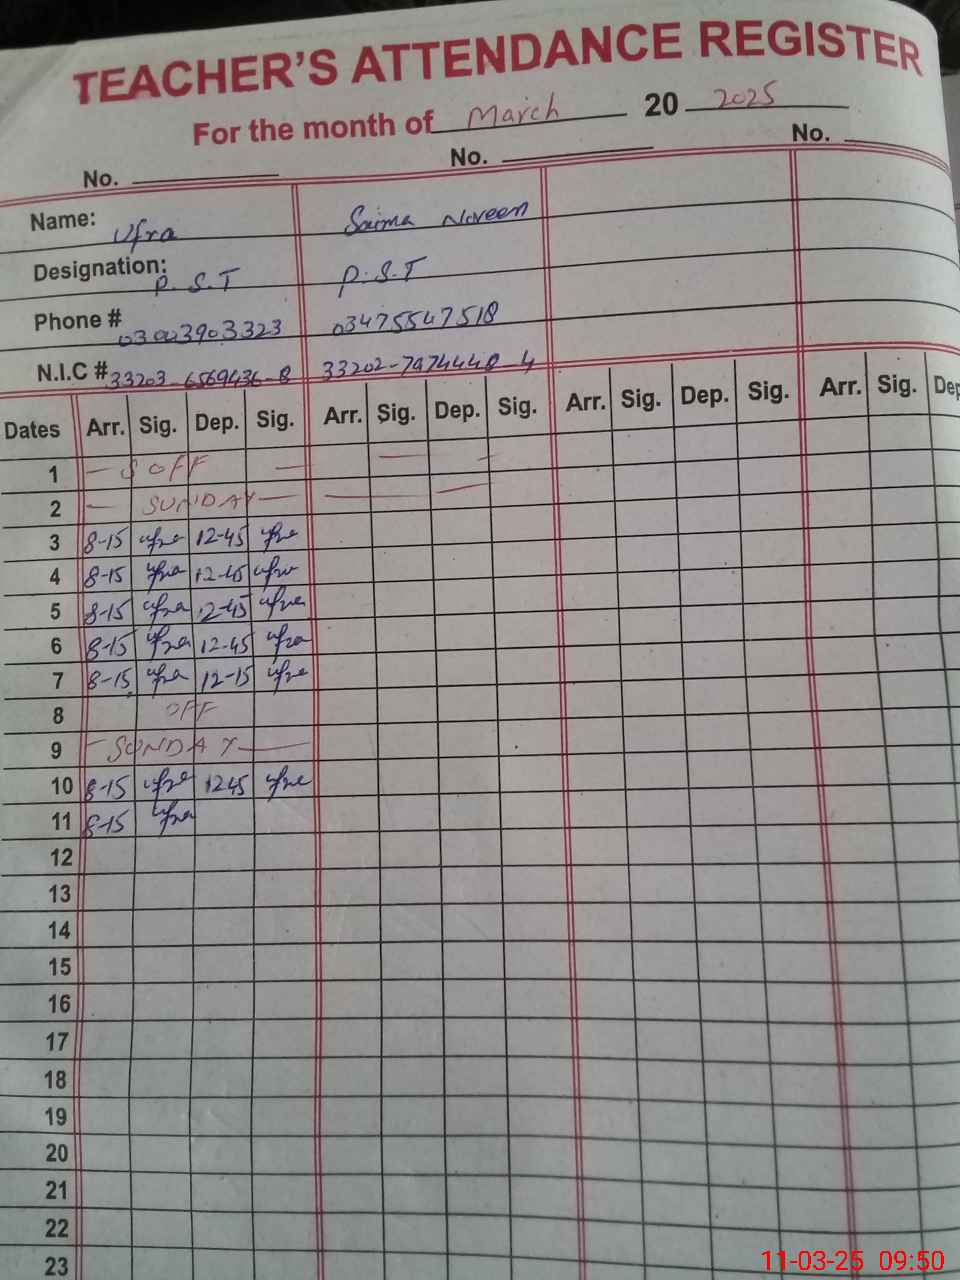 TEACHER'S ATTENDANCE REGISTER
For the month of March 20 2025
No. No. No.
Name: Ufra Saima Noreen
Designation: P.S.T P.S.T
Phone # 03003903323 03475547518
N.I.C # 33203-6569436-8 33202-7974448-4
Dates Arr. Sig. Dep. Sig. Arr. Sig. Dep. Sig. Arr. Sig. Dep. Sig. Arr. Sig. Dep
1 — S OFF — — -
2 — SUNDAY — — —
3 8-15 ufra 12-45 ufra
4 8-15 ufra 12-45 ufra
5 8-15 ufra 12-45 ufra
6 8-15 ufra 12-45 ufra
7 8-15 ufra 12-15 ufra
8 OFF
9 - SUNDAY —
10 8-15 ufra 1245 ufra
11 8-15 ufra
12
13
14
15
16
17
18
19
20
21
22
23
11-03-25 09:50